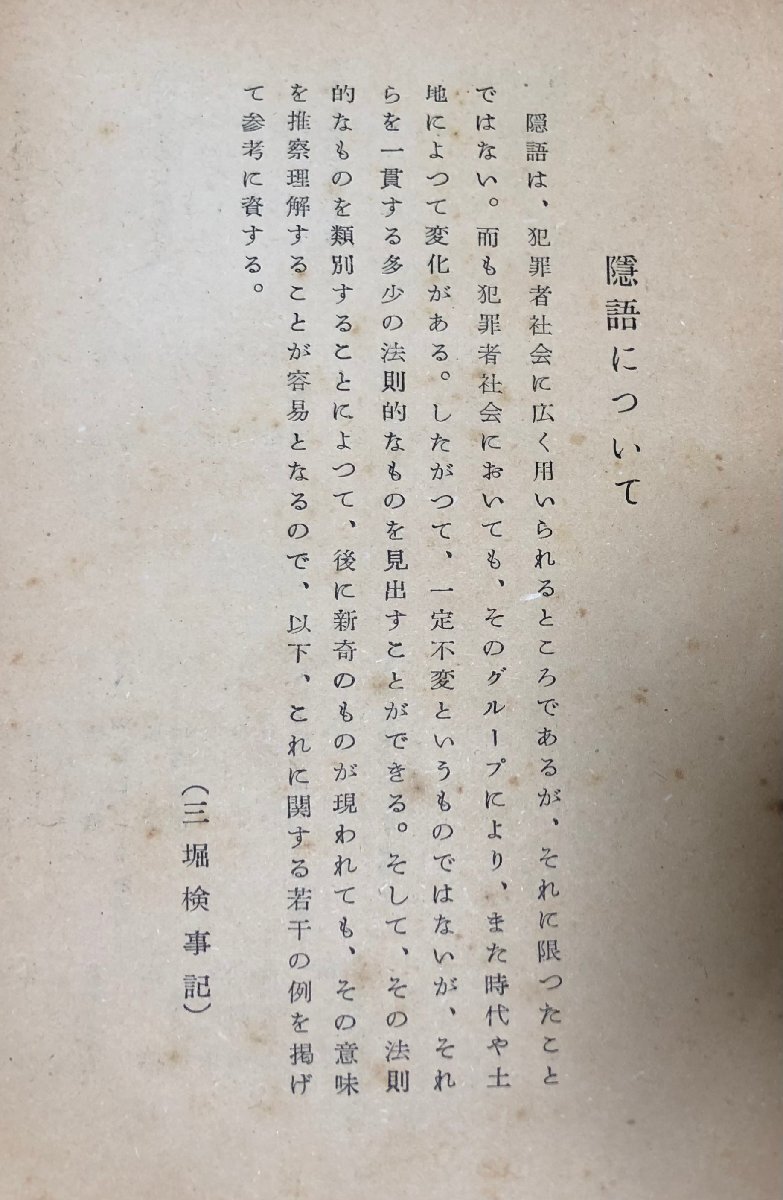 隱語について
隱語は、犯罪者社会に広く用いられるところであるが、それに限つたこと
ではない。而も犯罪者社会においても、そのグループにより、また時代や土
地によつて変化がある。したがつて、一定不変というものではないが、それ
らを一貫する多少の法則的なものを見出すことができる。そして、その法則
的なものを類別することによつて、後に新奇のものが現われても、その意味
を推察理解することが容易となるので、以下、これに関する若干の例を掲げ
て参考に資する。
（三堀検事記）